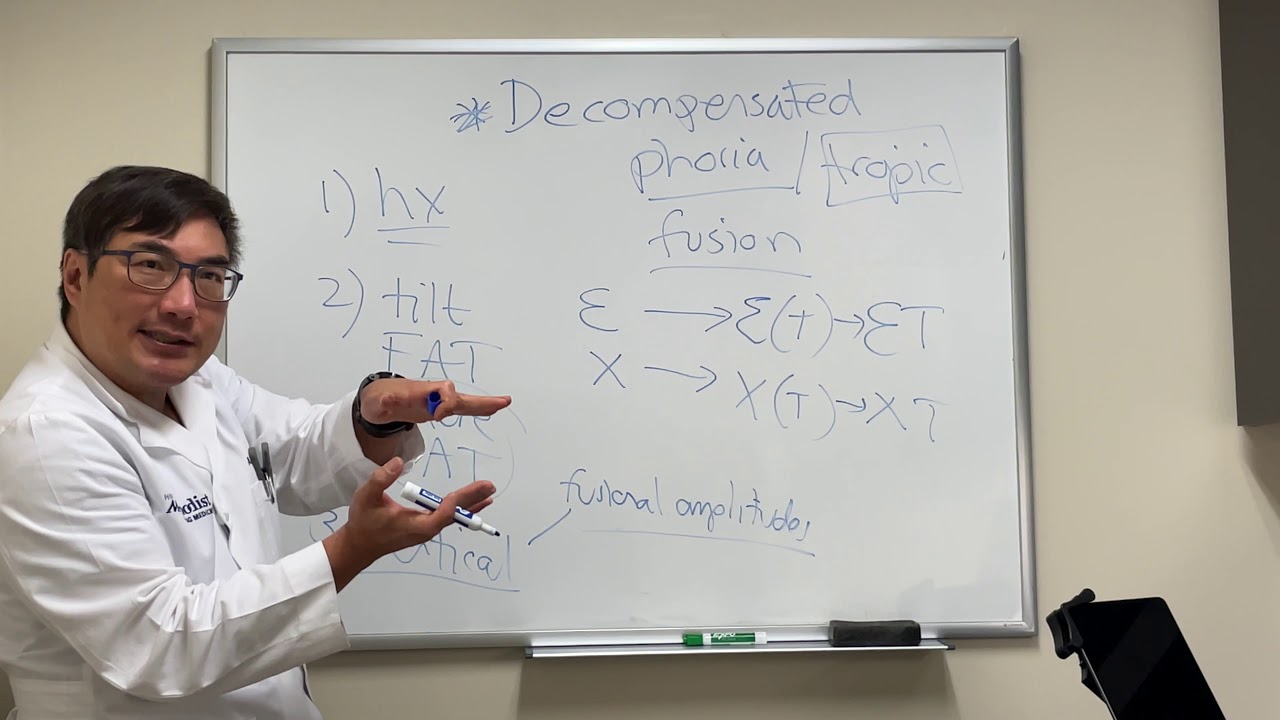 * Decompensated
phoria / tropic
fusion
1) hx
2) tilt
FAT
AT
3
tical
E → E(T) → ET
X → X(T) → XT
fusional amplitudes
EXPO